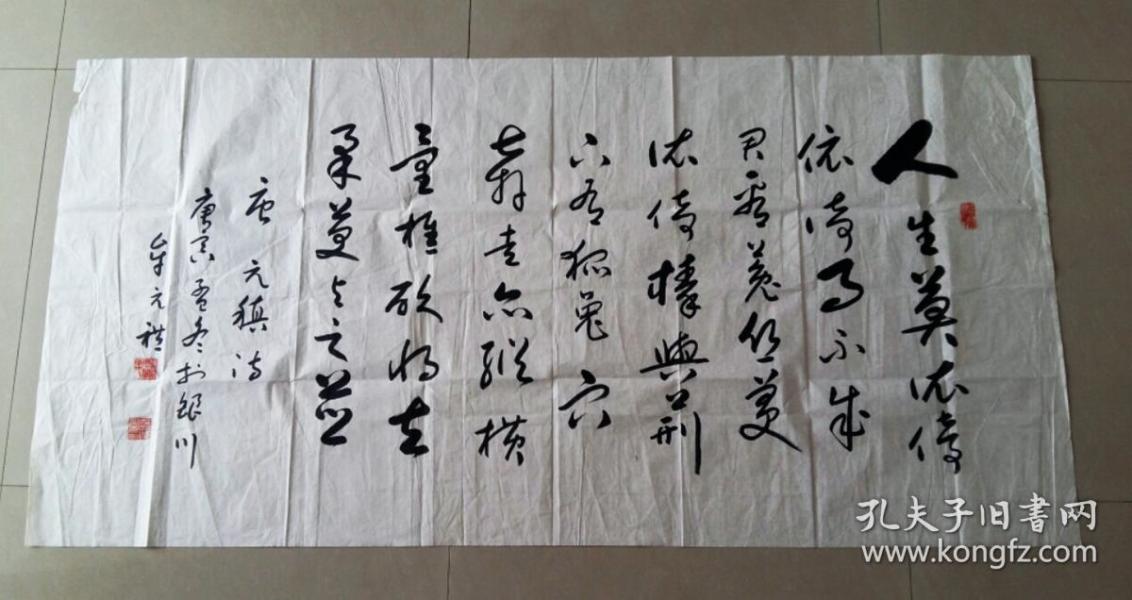 人生莫依倚
依倚事不成
君看菟丝蔓
依倚榛與荆
下有狐兔穴
奔走亦縱横
童樵砍将去
柔蔓与之並
唐 元稹诗
庚寅孟冬於銀川
牟元礼
孔夫子旧書网
www.kongfz.com